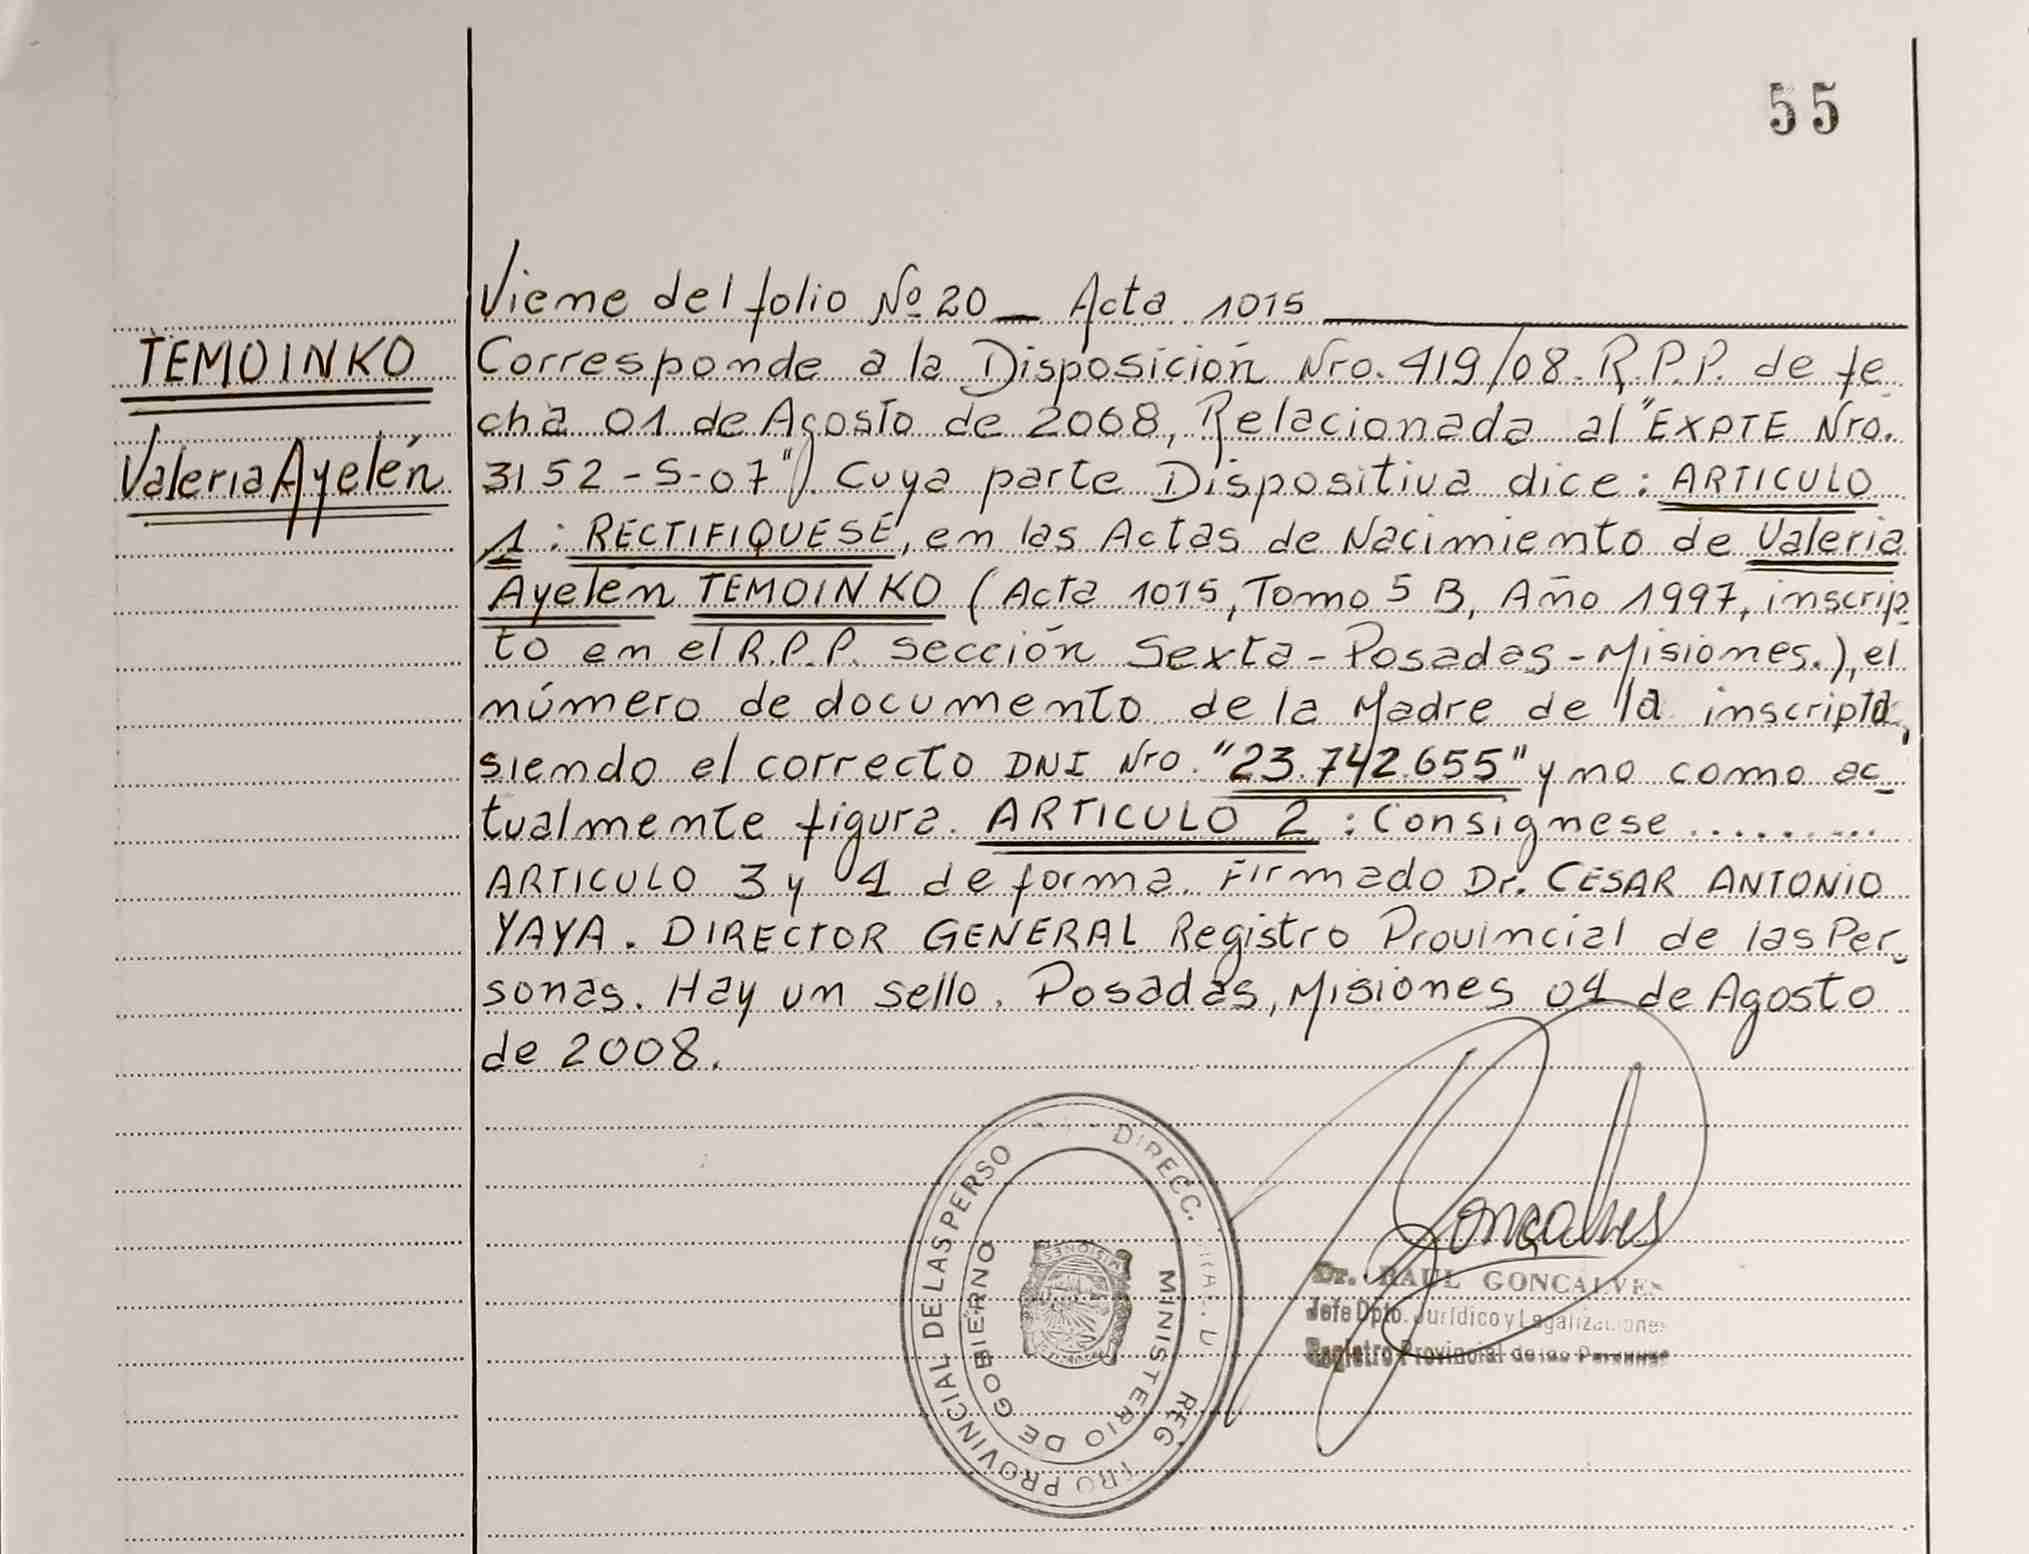 55
Viene del folio Nº 20 _ Acta 1015
TEMOINKO
Valeria Ayelén
Corresponde a la Disposición Nro. 419/08. R.P.P. de fe
cha 01 de Agosto de 2008, Relacionada al "EXPTE Nro.
3152-S-07". Cuya parte Dispositiva dice: ARTICULO
1: RECTIFIQUESE, en las Actas de Nacimiento de Valeria
Ayelén TEMOINKO (Acta 1015, Tomo 5 B, Año 1997, inscrip
to en el R.P.P. sección Sexta-Posadas-Misiones.), el
número de documento de la Madre de la inscripta,
siendo el correcto DNI Nro. "23.742.655" y no como ac_
tualmente figura. ARTICULO 2: Consignese .........
ARTICULO 3 y 4 de forma. Firmado Dr. CESAR ANTONIO
YAYA. DIRECTOR GENERAL Registro Provincial de las Per_
sonas. Hay un sello. Posadas, Misiones 04 de Agosto
de 2008.
DIRECC. PROVINCIAL DE LAS PERSO
MINISTERIO DE GOBIERNO
MISIONES
Goncalves
Dr. RAUL GONCALVES
Jefe Dpto. Jurídico y Legalizaciones
Registro Provincial de las Personas